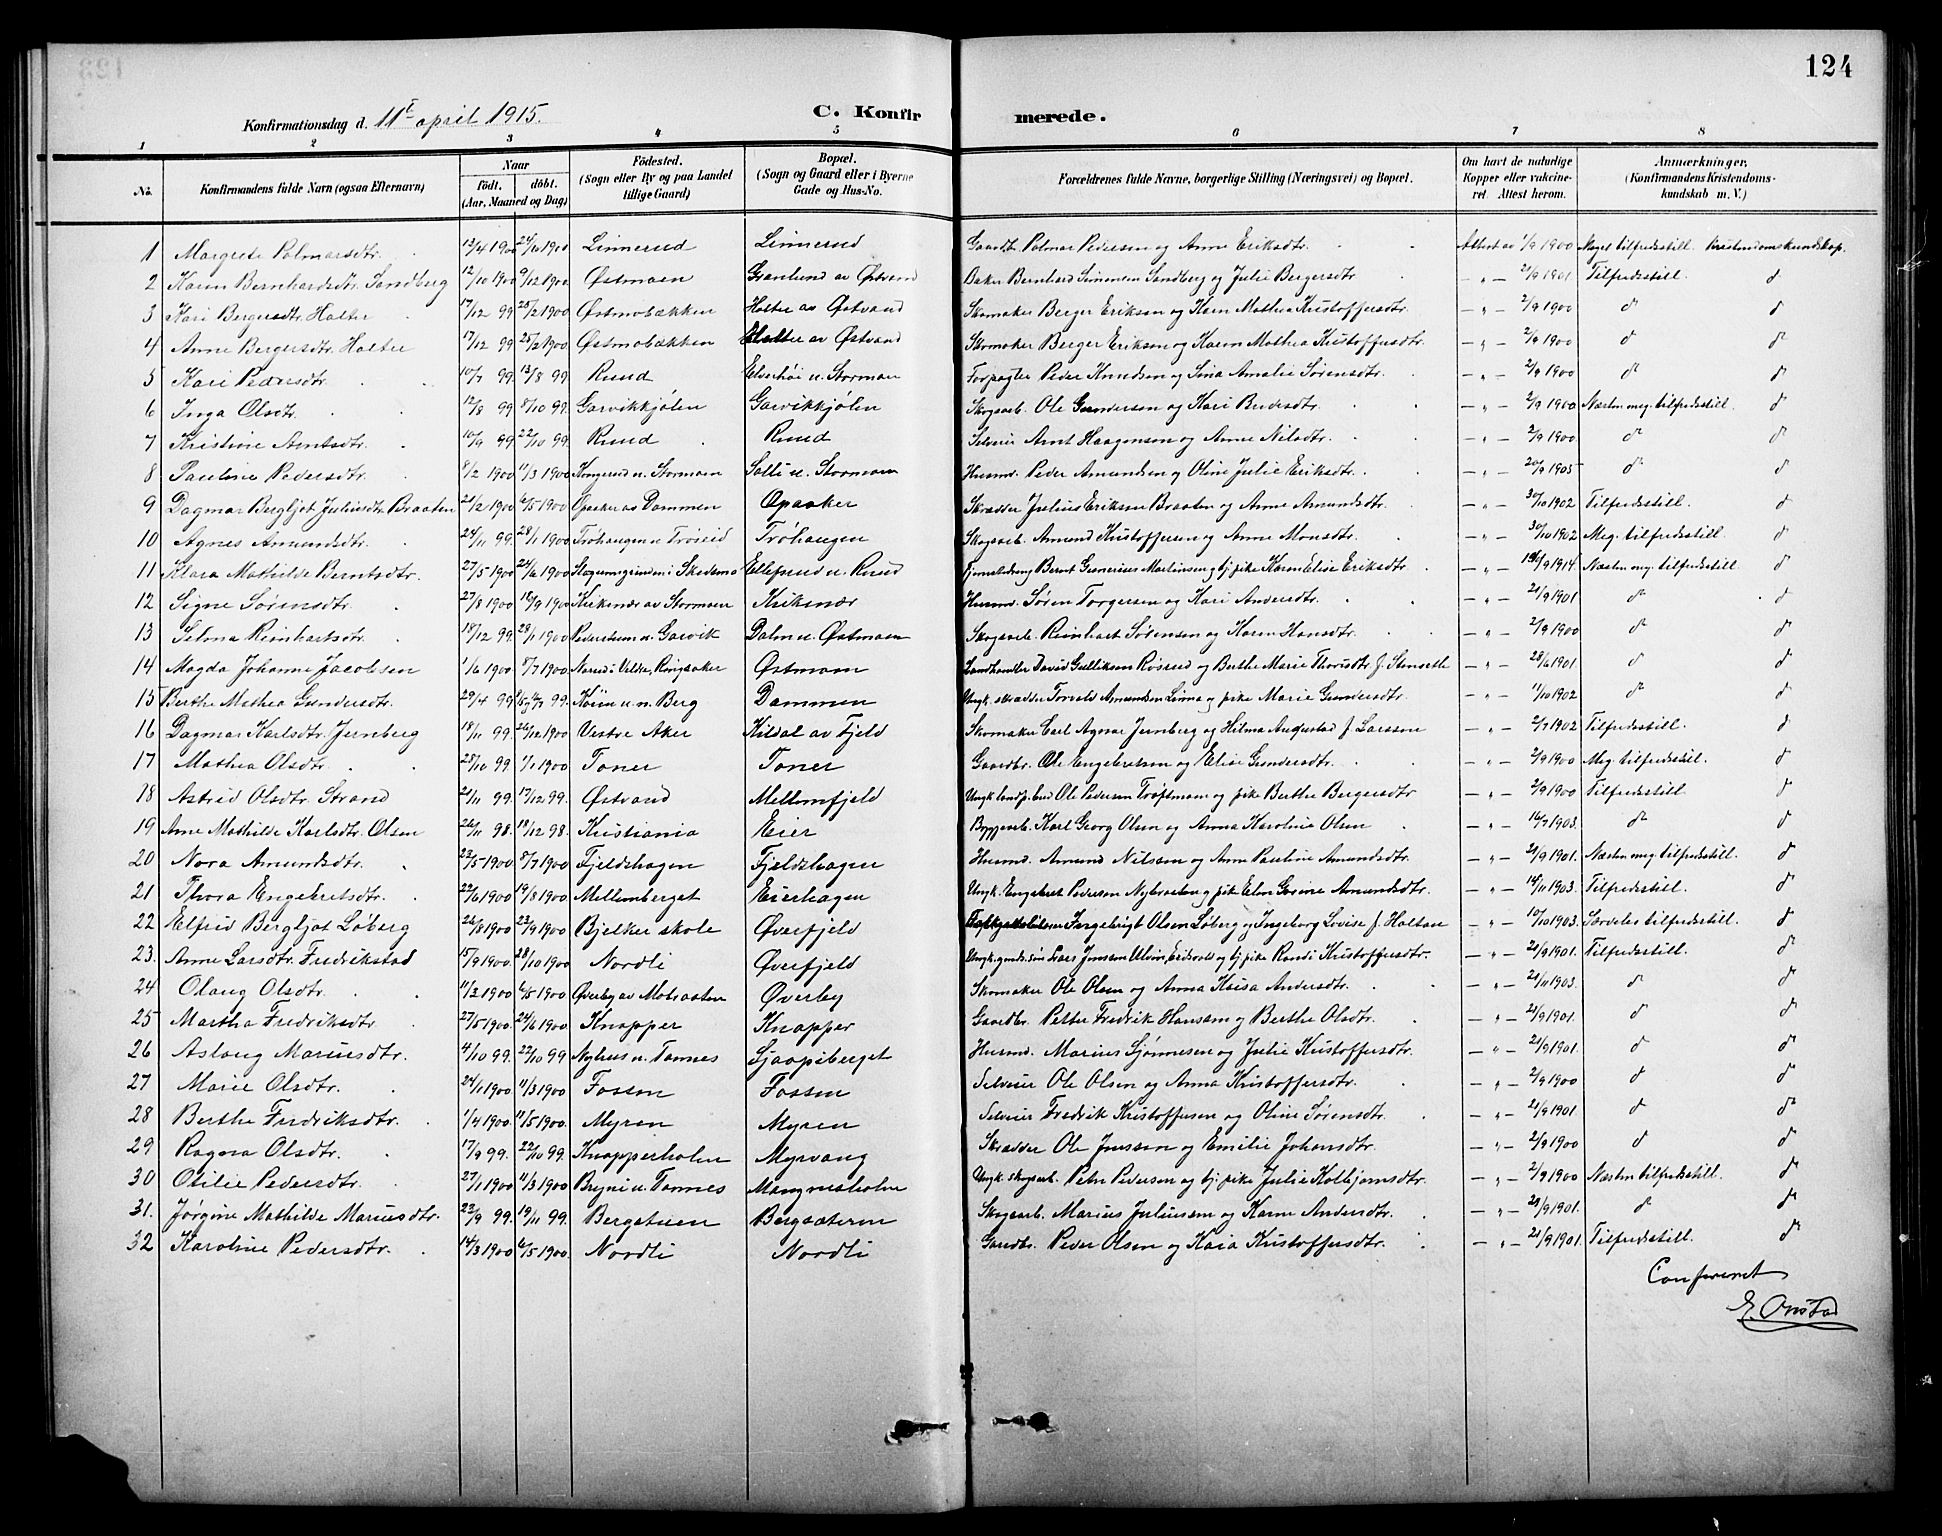 124
Konfirmationsdag d. 11te april 1915. C. Konfirmerede.
1 2 3 4 5 6 7 8
No. Konfirmandens fulde Navn (ogsaa Efternavn) Naar født. døbt. (Aar, Maaned og Dag) Födested. (Sogn eller By og paa Landet tillige Gaard) Bopæl. (Sogn og Gaard eller i Byerne Gade og Hus-No. Forældrenes fulde Navne, borgerlige Stilling (Næringsvei) og Bopæl. Om havt de naturlige Kopper eller vakcineret. Attest herom. Anmærkninger. (Konfirmandens Kristendomskundskab m. V.)
1 Margrete Palmarsdtr. 13/4 1900 24/6 1900 Linnerud Linnerud Gaardbr. Palmar Pedersen og Anne Eriksdtr. Attest av 1/9 1900 Meget tilfredsstill. Kristendomskundskap.
2 Karen Bernhardsdtr. Sandberg 12/10 1900 9/12 1900 Østmoen Granlund av Østvand Baker Bernhard Simensen Sandberg og Julie Bergersdtr. — " — 2/9 1901 Tilfredsstill. d
3 Kari Bergersdtr. Halter 17/12 99 25/2 1900 Østmobækken Halter av Østvand Skomaker Berger Eriksen og Karen Mathea Kristoffersdtr. — " — 2/9 1900 d d
4 Anne Bergersdtr. Halter 17/12 99 25/2 1900 Østmobækken Halter av Østvand Skomaker Berger Eriksen og Karen Mathea Kristoffersdtr. — " — 2/9 1900 d d
5 Kari Pedersdtr. 10/7 99 13/8 99 Ruud Elverhøi u. Stormoen Forpagter Peder Knudsen og Sina Amalie Sørensdtr. — " — 2/9 1900 d d
6 Inga Olsdtr. 12/8 99 8/10 99 Garvikkjølen Garvikkjølen Skogsarb. Ole Gundersen og Kari Bredesdtr. — " — 2/9 1900 Næsten meg. tilfredsstill. d
7 Kristine Arntsdtr. 10/9 99 22/10 99 Ruud Ruud Selveier Arnt Haagensen og Anne Nilsdtr. — " — 2/9 1900 d d
8 Pauline Pedersdtr. 8/2 1900 11/3 1900 Kongerud u. Stormoen Solli u. Stormoen Husmd. Peder Amundsen og Oline Julie Eriksdtr. — " — 20/9 1905 d d
9 Dagmar Bergljot Juliusdtr. Braaten 21/2 1900 6/5 1900 Opaaker av Dammen Opaaker Skrædder Julius Eriksen Braaten og Anne Amundsdtr. — " — 30/10 1902 Tilfredsstill. d
10 Agnes Amundsdtr. 24/11 99 28/1 1900 Trøhaugen u. Trøseid Trøhaugen Skogsarb. Amund Kristoffersen og Anne Monsdtr. — " — 30/10 1902 Meg. tilfredsstill. d
11 Klara Mathilde Berntsdtr. 27/5 1900 24/6 1900 i Skedsmo Ellefsrud u. Ruud Bernt Gunerius Martinsen og tj. pike Karen Elise Eriksdtr. — " — 9 1914 Næsten meg. tilfredsstill. d
12 Signe Sørensdtr. 27/8 1900 16/9 1900 Kirkenær av Stormoen Kirkenær Husmd. Søren Torgersen og Kari Andersdtr. — " — 21/9 1901 d d
13 Selma Reinhartsdtr. 18/12 99 28/1 1900 Pederstuen u. Garvik Dalen u. Østmoen Skogsarb. Reinhart Sørensen og Karen Hansdtr. — " — 2/9 1900 d d
14 Magda Johanne Jacobsen 1/6 1900 8/7 1900 Ringsaker Østmoen Landhandler David Gulliksen Røserud og Berthe Marie Thorsdtr. f. Stenseth — " — 28/6 1901 d d
15 Berthe Mathea Gundersdtr. 29/4 99 Køien u. n. Berg Dammen Ungk. skrædder Torvald Amundsen Linna og pike Marie Gundersdtr. — " — 11/10 1902 d d
16 Dagmar Karlsdtr. Jernberg 18/11 99 26/12 1900 Vestre Aker Kildal av Fjeld Skomaker Carl Agnar Jernberg og Hilma Augustad f. Larsson — " — 2/7 1902 Tilfredsstill. d
17 Mathea Olsdtr. 28/10 99 7/1 1900 Toner Toner Gaardbr. Ole Engebretsen og Elise Gundersdtr. — " — 2/9 1900 Meg. tilfredsstill. d
18 Astrid Olsdtr. Strand 21/11 99 17/12 99 Østvand Mellomfjeld Ungk. landp.bud Ole Pedersen Trøftmoen og pike Berthe Bergersdtr — " — 2/9 1900 Tilfredsstill. d
19 Anne Mathilde Karlsdtr. Olsen 26/11 98 18/12 98 Kristiania Eier Byggearb. Karl Georg Olsen og Anna Karoline Olsen — " — 16/7 1903 d d
20 Nora Amundsdtr. 23/5 1900 8/7 1900 Fjeldshagen Fjeldshagen Husmd. Amund Nilssen og Anne Pauline Amundsdtr. — " — 21/9 1901 Næsten meg. tilfredsstill. d
21 Thora Engebretsdtr. 22/6 1900 19/8 1900 Mellemberget Eierhagen Ungk. Engebret Pedersen Nybraaten og pike Elen Gurine Amundsdtr. — " — 14/11 1903 Tilfredsstill. d
22 Elfrid Bergljot Løberg 26/8 1900 23/9 1900 Bjelker skole Øverfjeld Ingebrigt Olsen Løberg og Ingeborg Lovise f. Haltan — " — 10/10 1903 Særdeles tilfredsstill. d
23 Anne Larsdtr. Fredrikstad 15/9 1900 28/10 1900 Nordli Øverfjeld Ungk. gaards.søn Lars Jensen Ulvin, Eidsvold og tj. pike Randi Kristoffersdtr. — " — 21/9 1901 Tilfredsstill. d
24 Olaug Olsdtr. 11/3 1900 6/5 1900 Øverby av Motraaten Øverby Skomaker Ole Olsen og Anna Kaisa Andersdtr. — " — 21/11 1903 d d
25 Martha Fredriksdtr. 27/5 1900 24/6 1900 Knapper Knapper Gaardbr. Petter Fredrik Hansen og Berthe Olsdtr. — " — 21/9 1901 d d
26 Aslaug Mariusdtr. 4/10 99 22/10 99 Nyhus u. Tannes Sjaapsberget Husmd. Marius Sjønnesen og Julie Kristoffersdtr. — " — 21/9 1901 d d
27 Marie Olsdtr. 24/1 1900 11/3 1900 Fossen Fossen Selveier Ole Olsen og Anna Kristoffersdtr. — " — 2/9 1900 d d
28 Berthe Fredriksdtr. 1/4 1900 11/5 1900 Myren Myren Selveier Fredrik Kristoffersen og Oline Sørensdtr. — " — 21/9 1901 d d
29 Ragna Olsdtr. 17/9 99 22/10 99 Knapperholen Myrvang Skrædder Ole Jenssen og Emilie Johansdtr. — " — 2/9 1900 d d
30 Otilie Pedersdtr. 27/1 1900 11/3 1900 Bryni u. Tannes Mangnesholen Ungk. skogsarb. Peter Pedersen og tj. pike Julie Kolbjørnsdtr. — " — 2/9 1900 Næsten tilfredsstill. d
31. Jørgine Mathilde Mariusdtr. 23/9 99 19/11 99 Bergstuen Bergsæteren Skogsarb. Marius Juliussen og Karen Andersdtr. — " — 21/9 1901 d d
32 Karoline Pedersdtr. 14/3 1900 6/5 1900 Nordli Nordli Gardbr. Peder Olsen og Kaia Kristoffersdtr. — " — 21/9 1901 Tilfredsstill. d
Confereret
E. Onstad